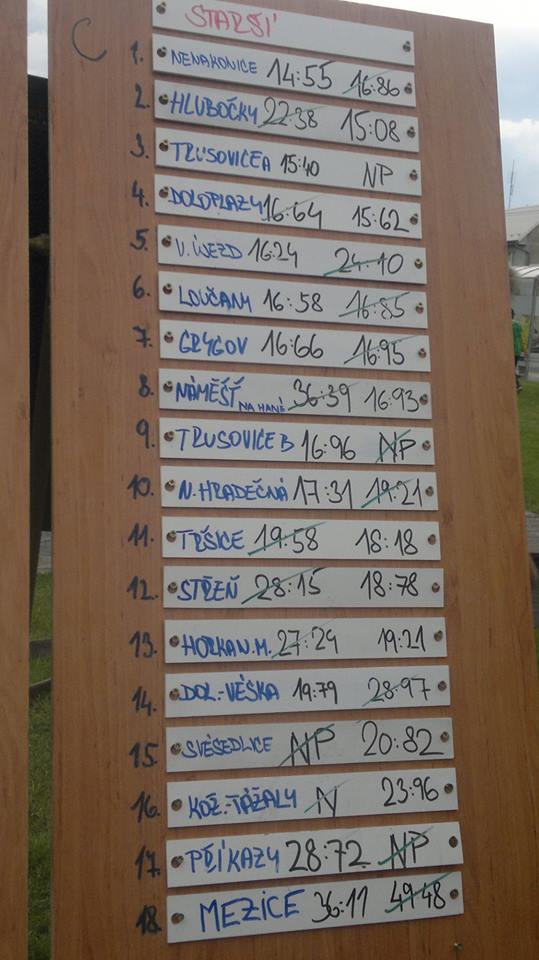 STARŠÍ
C
1. NENAKONICE 14:55 16:86
2. HLUBOČKY 22:38 15:08
3. TRUSOVICE A 15:40 NP
4. DOLOPLAZY 16:64 15:62
5. V. ÚJEZD 16:24 24:10
6. LOUČANY 16:58 16:85
7. GRYGOV 16:66 16:95
8. NÁMĚŠŤ NA HANÉ 36:39 16:93
9. TRUSOVICE B 16:96 NP
10. N. HRADEČNÁ 17:31 19:21
11. TRŠICE 19:58 18:18
12. STŘEŇ 28:15 18:78
13. HORKA N.M. 27:29 19:21
14. DOL.-VÉSKA 19:79 28:97
15. SVÉSEDLICE NP 20:82
16. KOŽ.-TÁŽALY N 23:96
17. PŘÍKAZY 28:72 NP
18. MEZICE 36:11 49:48